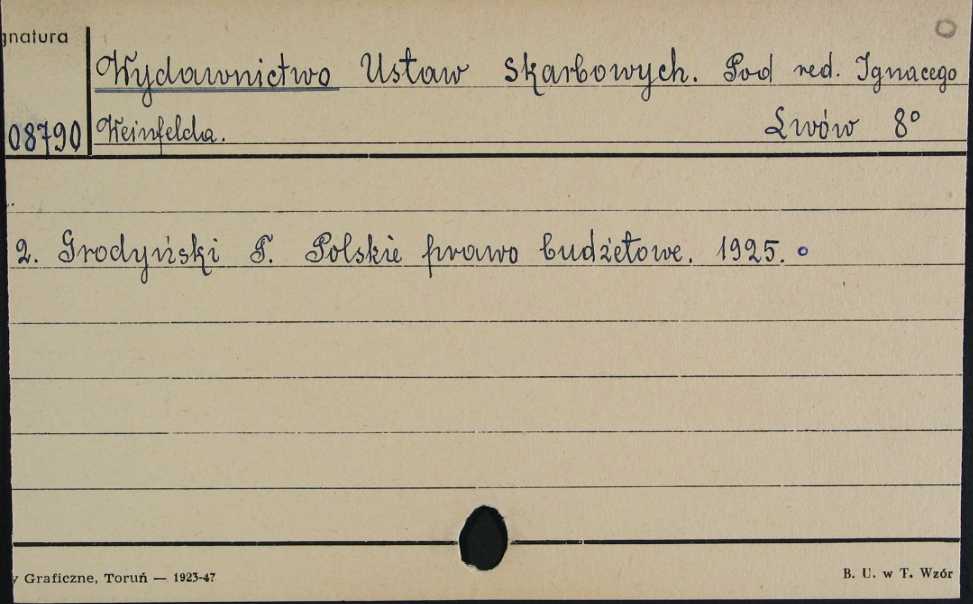 gnatura
Wydawnictwo Ustaw Skarbowych. Pod red. Ignacego
08790 Weinfelda. Lwów 8°
2. Grodyński T. Polskie prawo budżetowe. 1925.
y Graficzne, Toruń — 1923-47
B. U. w T. Wzór